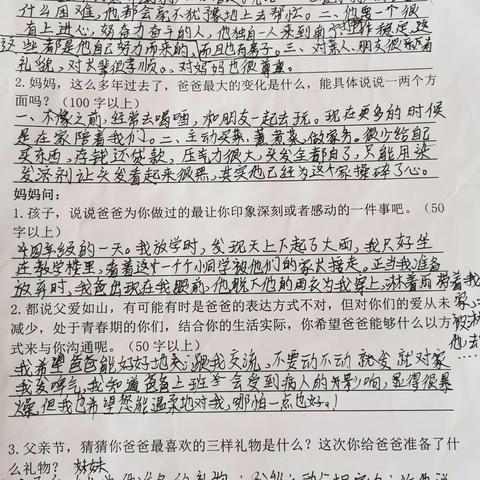 什么困难,他都会毫不犹豫地上去帮忙。二、他是一个很
有上进心,努力奋斗的人,他独自一人来到南宁,工作稳定,这
这些都是他自己努力而来的,而且也有房子。三、对家人、朋友很
礼貌,对长辈很孝顺。对妈妈也很尊重。
2.妈妈,这么多年过去了,爸爸最大的变化是什么,能具体说说一两个方
面吗?(100字以上)
一、不像之前,经常去喝酒,和朋友一起去玩。现在更多的时候
是在家陪着我们。二、主动买菜、煮菜,做家务。很少给自己
买东西,存钱还贷款,压力很大,头发全都白了,只能用染
发济剂让头发看起来很黑,其实他已经为这个家操碎了心。
妈妈问:
1.孩子,说说爸爸为你做过的最让你印象深刻或者感动的一件事吧。(50
字以上)
四年级的一天。我放学时,发现天上下起了大雨,我只好坐
在教学楼里,看着这一个个小同学被他们的家长接走。正当我准备
放弃时,我爸出现在我眼前,他脱下他的雨衣为我穿上,淋着雨带着我
2.都说父爱如山,有可能有时是爸爸的表达方式不对,但对你们的爱从未
减少,处于青春期的你们,结合你的生活实际,你希望爸爸能够什么以方
式来与你沟通呢。(50字以上)
我希望爸爸能好好地来跟我交流,不要动不动就发就对家
我发脾气,我知道爸爸上班会受到病人的影响,显得很暴
燥,但我也希望您能温柔地对我,哪怕一点也好。!
3.父亲节,猜猜你爸爸最喜欢的三样礼物是什么?这次你给爸爸准备了什
么礼物? 妹妹